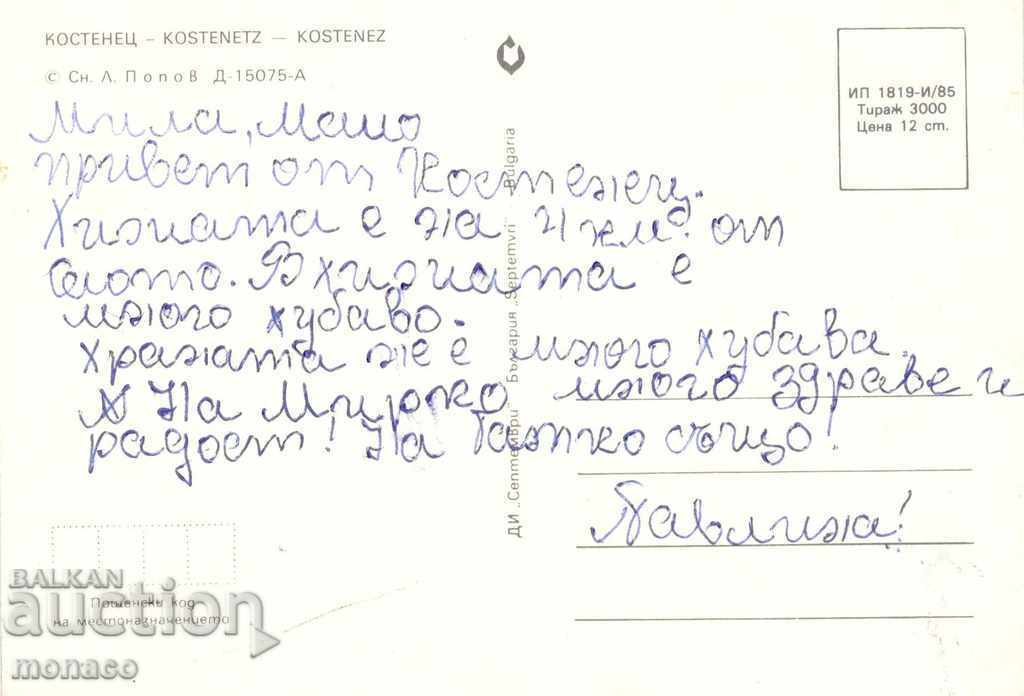 КОСТЕНЕЦ – KOSTENETZ — KOSTENEZ
© Сн. Л. Попов Д-15075-А
ИП 1819-И/85
Тираж 3000
Цена 12 ст.
Мила, Мамо
привет от Костенец.
Хижата е на 4 км. от
селото. В хижата е
много хубаво.
Храната же е много хубава.
На Мирко много здраве и
радост! На Татко също!
Павлина!
ДИ „Септември" България „Septemvri" Bulgaria
Пощенски код
на местоназначението
BALKAN
auction
monaco